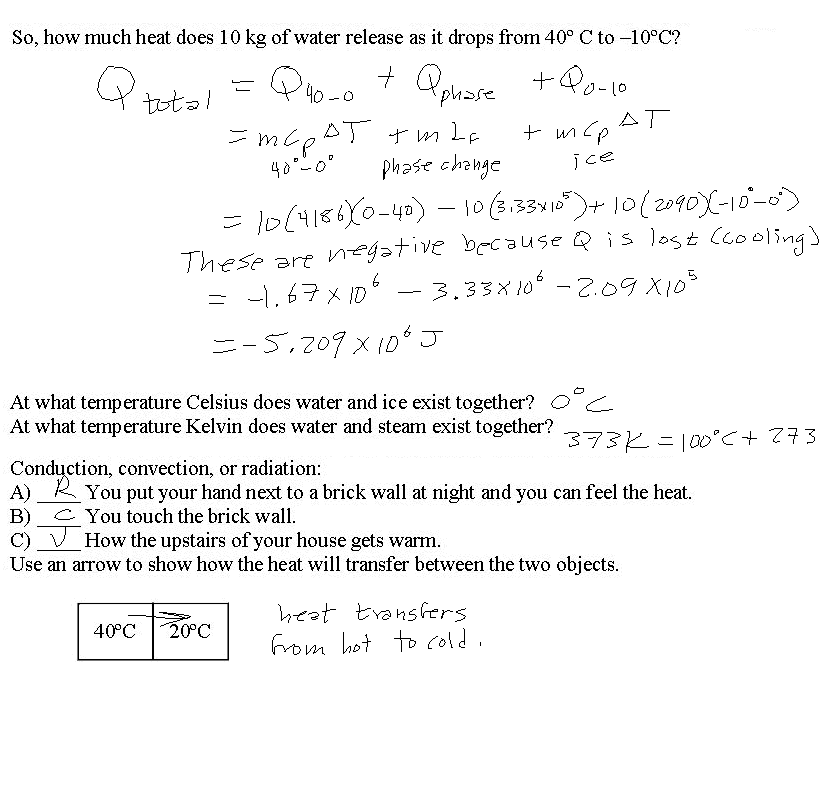 So, how much heat does 10 kg of water release as it drops from 40º C to –10ºC?
Q total = Q40-0 + Qphase + Q0-10
= mCpΔT + mLf + mCpΔT
40°-0° phase change ice
= 10(4186)(0-40) - 10(3.33x10⁵) + 10(2090)(-10°-0°)
These are negative because Q is lost (cooling)
= -1.67 x 10⁶ - 3.33x10⁶ - 2.09 x10⁵
= -5.209 x 10⁶ J
At what temperature Celsius does water and ice exist together? 0°C
At what temperature Kelvin does water and steam exist together? 373K = 100°C + 273
Conduction, convection, or radiation:
A) R You put your hand next to a brick wall at night and you can feel the heat.
B) C You touch the brick wall.
C) V How the upstairs of your house gets warm.
Use an arrow to show how the heat will transfer between the two objects.
40ºC 20ºC
heat transfers
from hot to cold.